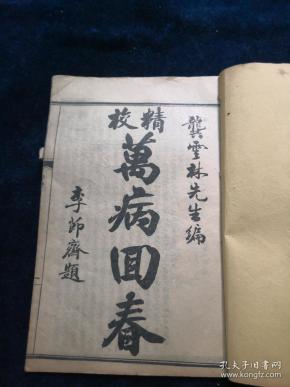 龔雲林先生編
精校
萬病回春
李節齋題
孔夫子旧书网